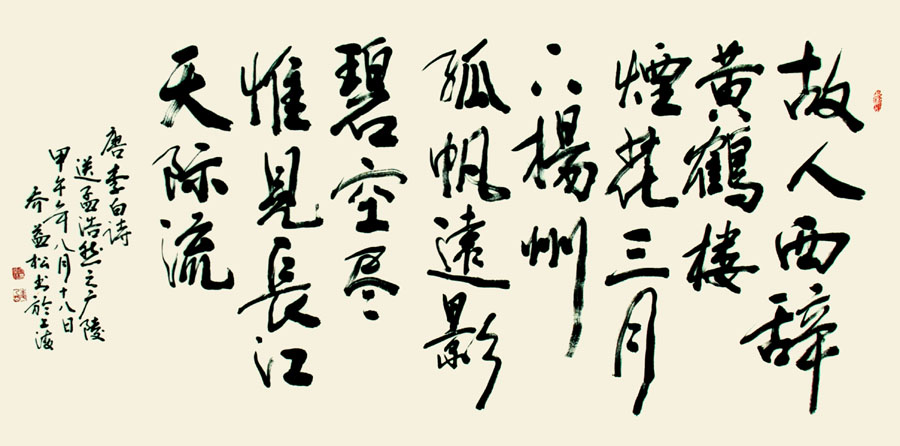 故人西辞
黄鹤楼
煙花三月
下揚州
孤帆遠影
碧空尽
惟見長江
天际流
唐李白诗
送孟浩然之广陵
甲午年八月十八日
乔益松书於上海